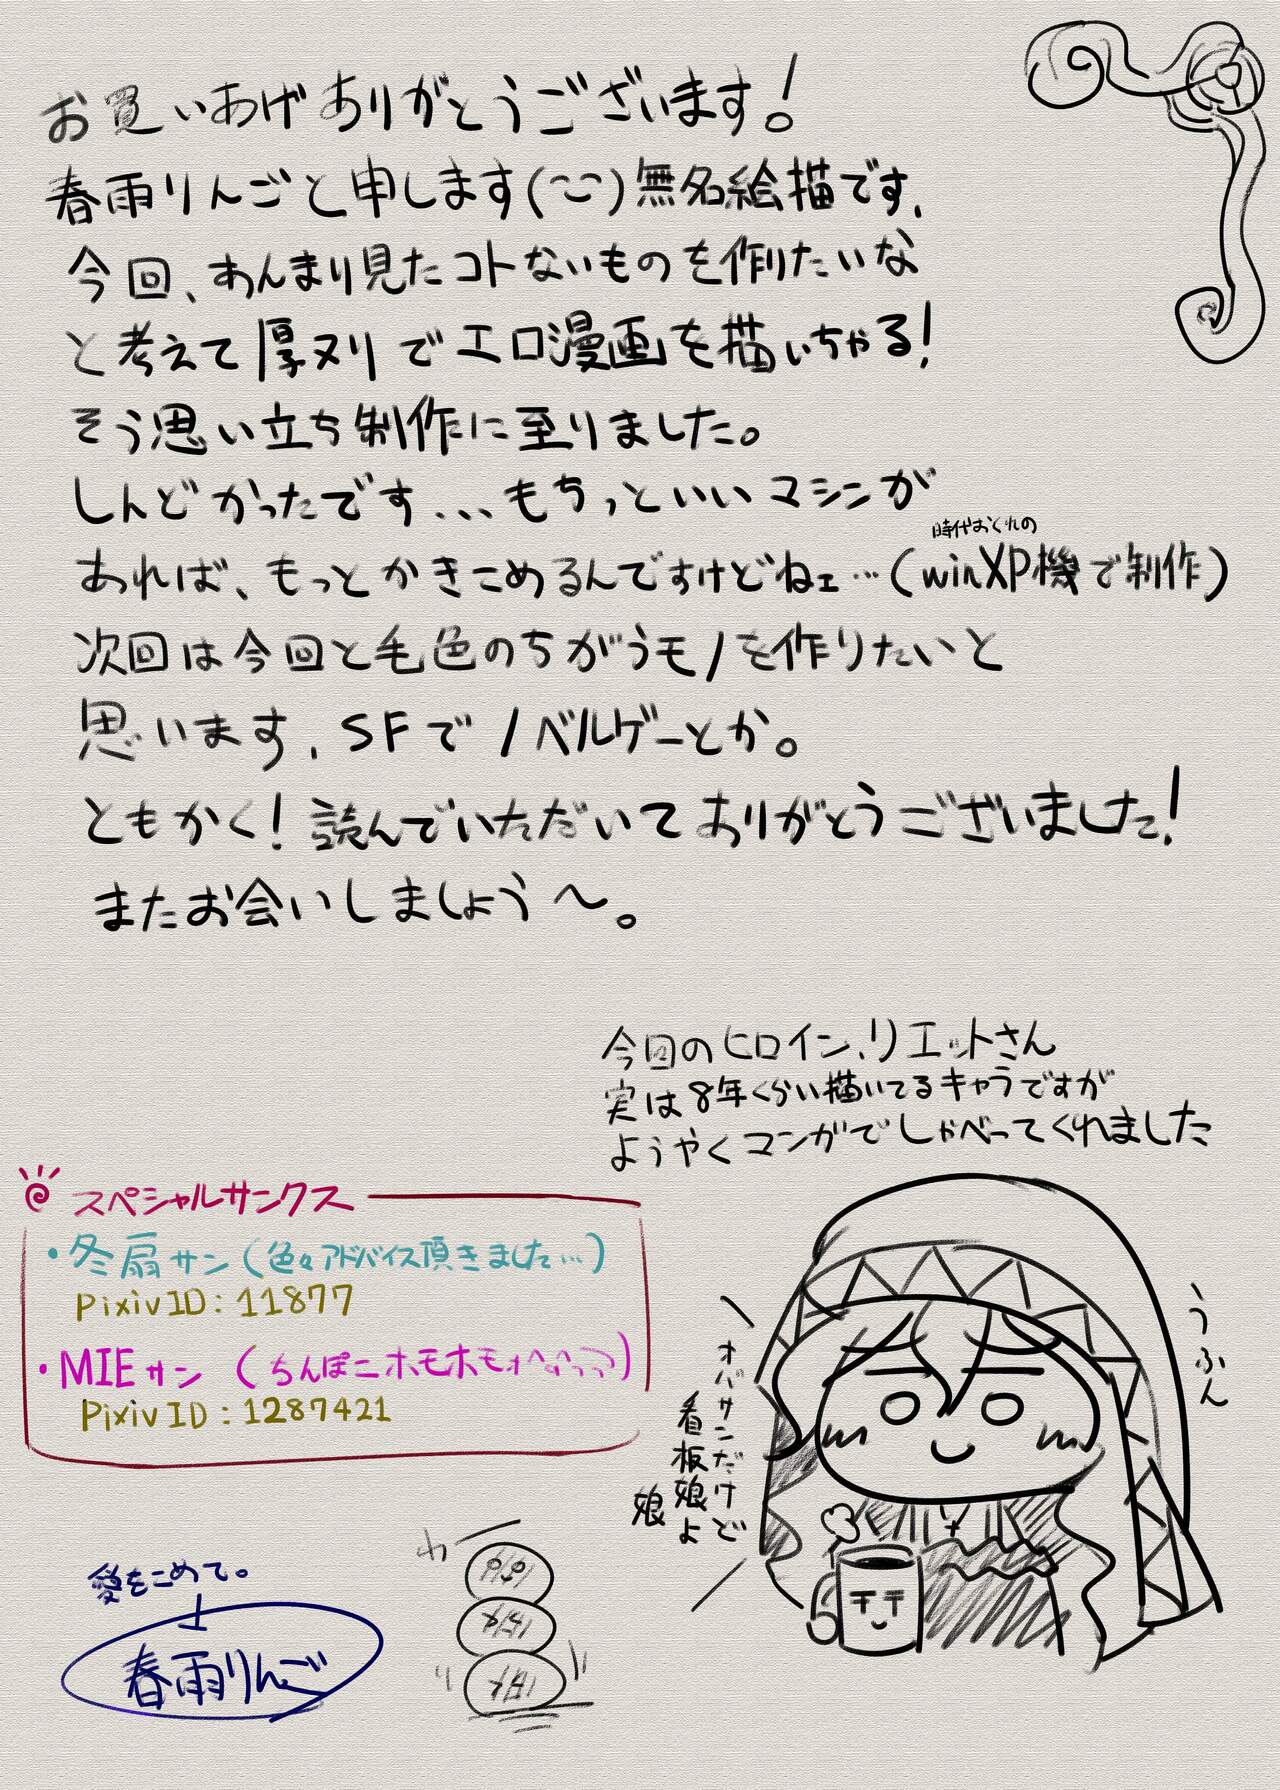 お買いあげありがとうございます!
春雨りんごと申します(︶︶)無名絵描です、
今回、あんまり見たコトないものを作りたいな
と考えて厚ヌリでエロ漫画を描いちゃる!
そう思い立ち制作に至りました。
しんどかったです、、、もちっといいマシンが
時代おくれの
あれば、もっとかきこめるんですけどねェ…(winXP機で制作)
次回は今回と毛色のちがうモノを作りたいと
思います、SFでノベルゲーとか。
ともかく!読んでいただいてありがとうございました!
またお会いしましょう〜。
今回のヒロイン、リエットさん
実は8年くらい描いてるキャラですが
ようやくマンガでしゃべってくれました
スペシャルサンクス
・冬扇サン(色々アドバイス頂きました…)
pixivID:11877
・MIEサン(ちんぽニホモホモ)
pixivID:1287421
うふん
オバサンだけど
看板娘よ
娘
愛をこめて。
春雨りんご